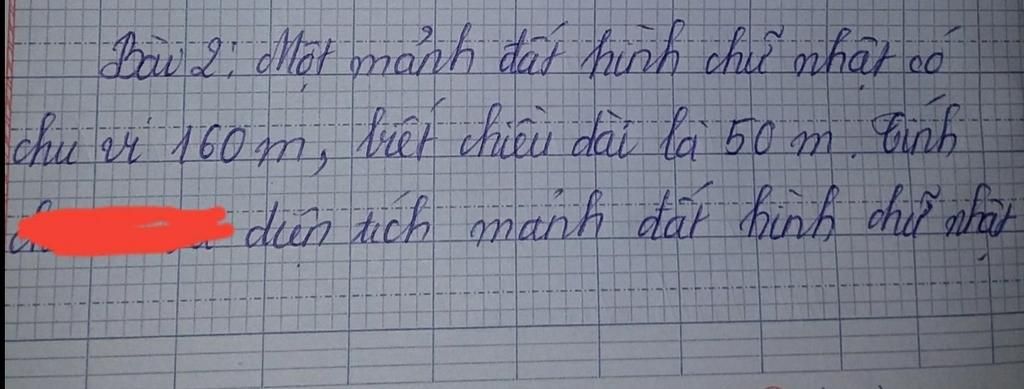 Bài 2: Một mảnh đất hình chữ nhật có
chu vi 160 m, biết chiều dài là 50 m. Tính
diện tích mảnh đất hình chữ nhật